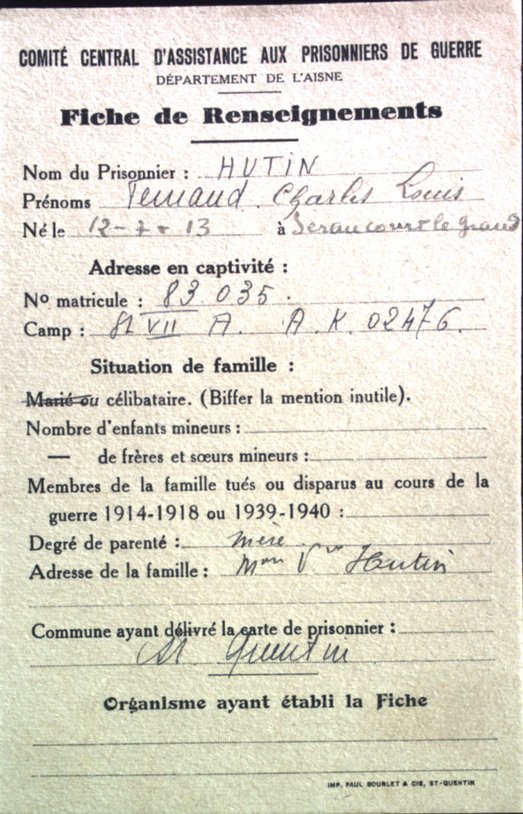 COMITÉ CENTRAL D'ASSISTANCE AUX PRISONNIERS DE GUERRE
DÉPARTEMENT DE L'AISNE
Fiche de Renseignements
Nom du Prisonnier : HUTIN
Prénoms Fernand Charles Louis
Né le 12-7-13 à Seraucourt le grand
Adresse en captivité :
No matricule : 83.035.
Camp : St VII A. A.K. 02476.
Situation de famille :
Marié ou célibataire. (Biffer la mention inutile).
Nombre d'enfants mineurs :
— de frères et sœurs mineurs :
Membres de la famille tués ou disparus au cours de la
guerre 1914-1918 ou 1939-1940 :
Degré de parenté : mère
Adresse de la famille : Mme Vve Hutin
Commune ayant délivré la carte de prisonnier :
St Quentin
Organisme ayant établi la Fiche
IMP. PAUL BOURLET & CIE, ST-QUENTIN